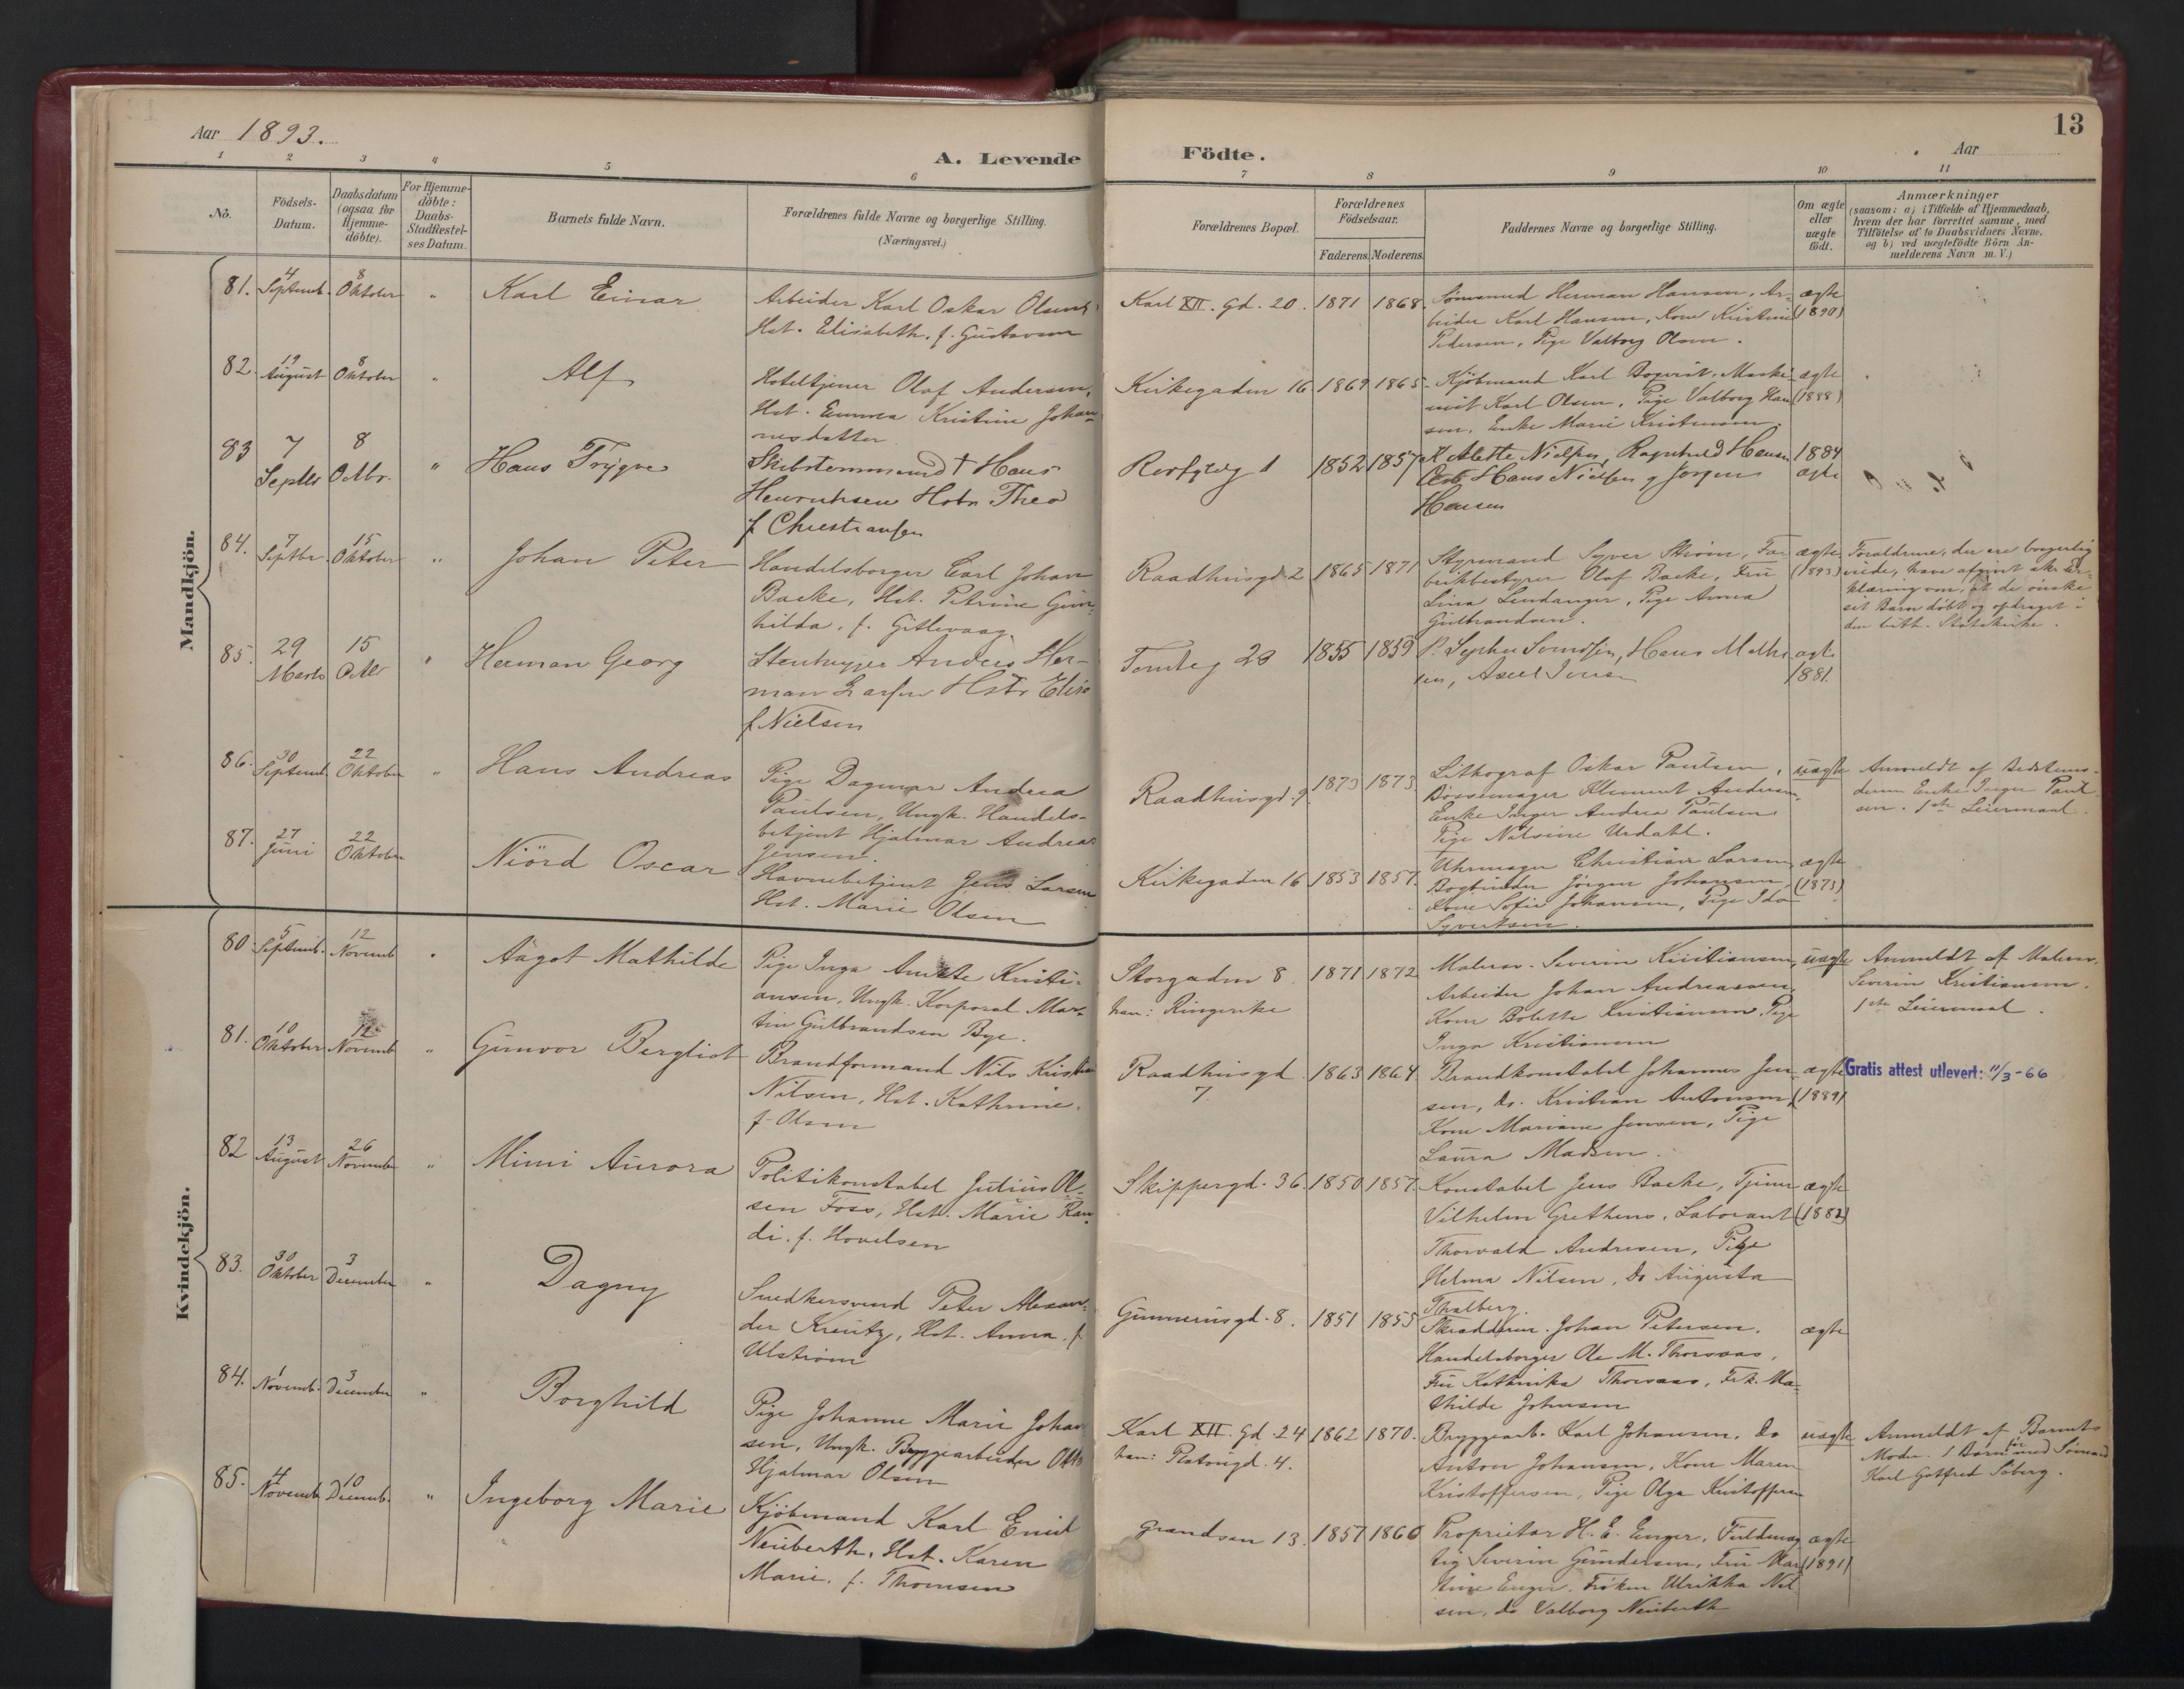 Aar 1893.
A. Levende
Födte.
13
Aar
1 2 3 4 5 6 7 8 9 10 11
Nö.
Födsels-
Datum.
Daabsdatum
(ogsaa for
Hjemme-
döbte).
For Hjemme-
döbte:
Daabs-
Stadfæstel-
ses Datum.
Barnets fulde Navn.
Forældrenes fulde Navne og borgerlige Stilling.
(Næringsvei.)
Forældrenes Bopæl.
Forældrenes
Födselsaar.
Faderens. Moderens.
Faddernes Navne og borgerlige Stilling.
Om ægte
eller
uægte
födt.
Anmærkninger
(saasom: a) i Tilfælde af Hjemmedaab,
hvem der har forrettet samme, med
Tilföielse af to Daabsvidners Navne,
og b) ved uægtefödte Börn An-
melderens Navn m. V.)
Mandkjön.
81. 4 Septemb. 8 Oktober " Karl Einar
Arbeider Karl Oskar Olsen,
Hst. Elisabeth, f. Gustavsen
Karl XII. gd. 20. 1871 1868.
Sömand Herman Hansen, Ar-
beider Karl Hansen, Kone Kristine
Pedersen, Pige Valborg Olsen.
ægte
(1890)
82. 19 August 8 Oktober " Alf
Hoteltjener Olaf Andersen,
Hst. Emma Kristine Johan-
nesdatter
Kirkegaden 16 1869 1865.
Kjöbmand Karl Bogerit, Maski-
nist Karl Olsen, Pige Valborg Han-
sen, Enke Marie Kristensen.
ægte
(1888)
83 7 Septbr 8 Octbr. " Hans Trygve
Skibstømmermand † Hans
Henrichsen Hstr. Thea
f Christiansen
1 1852 1857
K Alette Nielsen, Ragnhild Hansen
Hans Nielsen og Jørgen
Hansen
1884
ægte
84. 7 Septbr. 15 Oktober " Johan Peter
Handelsborger Carl Johan
Backe, Hst. Petrine Gun-
hilda, f. Gitlevaag.
Raadhusgd. 2 1865 1871
Styrmand Syver Ström, Fa-
brikbestyrer Olaf Backe, Fru
Lina Lindanger, Pige Anna
Gulbrandsen.
ægte
(1893)
Forældrene, der ere borgerlig
viede, have afgivet Er-
klæring om, at de önske
sit Barn döbt og opdraget i
den luth. Statskirke.
85. 29 Marts 15 Octbr " Herman Georg
Stenhugger Anders Her-
man Larsen Hstr Elise
f Nielsen
Tomteg 28 1855 1859
Hans Mathi-
sen, Axel Jensen
ægte
1881.
86. 30 Septemb. 22 Oktober " Hans Andreas
Pige Dagmar Andrea
Paulsen, Ungk. Handels-
betjent Hjalmar Andreas
Jensen.
Raadhusgd. 9. 1873 1873.
Lithograf Oskar Paulsen,
Bössemager Klement Andersen,
Enke Inger Andrea Paulsen
Pige Nalsine Urdahl.
uægte
Anmeldt af Bedstemo-
deren Enke Inger Paul-
sen. 1ste Leiermaal.
87. 27 Juni 22 Oktober Niörd Oscar
Havnebetjent Jens Larsen
Hst. Marie Olsen
Kirkegaden 16 1853 1857.
Uhrmager Christian Larsen,
Bogbinder Jörgen Johansen,
Kone Sofie Johansen, Pige Ida
Syvertsen.
ægte
(1873)
Kvindekjön.
80. 5 Septemb. 12 Novemb. " Aagot Mathilde
Pige Inga Anette Kristi-
ansen, Ungk. Korporal Mar-
tin Gulbrandsen Bye.
Storgaden 8.
han: Ringerike
1871 1872
Malersv. Severin Kristiansen,
Arbeider Johan Andreassen,
Kone Bolette Kristiansen, Pige
Inga Kristiansen
uægte
Anmeldt af Malersv.
Severin Kristiansen.
1ste Leiermaal.
81. 10 Oktober 12 Novemb " Gunvor Bergliot
Brandformand Nils Kristian
Nilsen, Hst. Kathrine.
f. Olsen
Raadhusgd
7.
1863 1864.
Brandkonstabel Johannes Jen-
sen, do. Kristian Antonsen,
Kone Mariane Jensen, Pige
Laura Madsen.
ægte
(1889)
Gratis attest utlevert: 11/3-66
82 13 August 26 November " Mimi Aurora
Politikonstabel Julius Ol-
sen Foss, Hst. Marie Ran-
di. f. Hovelsen
Skippergd. 36. 1850 1857.
Konstabel Jens Backe, Tjener
Vilhelm Grethens, Laborant
Thorvald Andresen, Pige
Helma Nilsen, Do Augusta
Thalberg.
ægte
(1882)
83. 30 Oktober 3 December " Dagny
Snedkersvend Peter Alexan-
der Kreutz, Hst. Anna. f.
Ulström
Gunnerusgd. 8. 1851 1855
Skræddersv. Johan Petersen,
Handelsborger Ole M. Thorsaas,
Fru Kathinka Thorsaas, Frk. Ma-
thilde Johnsen
ægte
84. 1 Novemb. 3 December " Borghild
Pige Johanne Marie Johan-
sen, Ungk. Bryggearbeider Otto
Hjalmar Olsen
Karl XII. Gd. 24
han: Platougd. 4.
1862 1870.
Bryggearb. Karl Johansen, Do
Anton Johansen, Kone Maren
Kristoffersen, Pige Olga Kristoffersen
uægte
Anmeldt af Barnets
Moder. 1 Barn för med Sömand
Karl Gotfred Söberg.
85. 4 Novemb 10 Decemb. " Ingeborg Marie
Kjöbmand Karl Emil
Neuberth, Hst. Karen
Marie. f. Thomsen
Grandsen 13. 1857 1860
Proprietær H. E. Enger, Fuldmæg-
tig Severin Gundersen, Fru Mar-
tine Enger. Fröken Ulrikka Nil-
sen, do Valborg Neuberth
ægte
(1891)